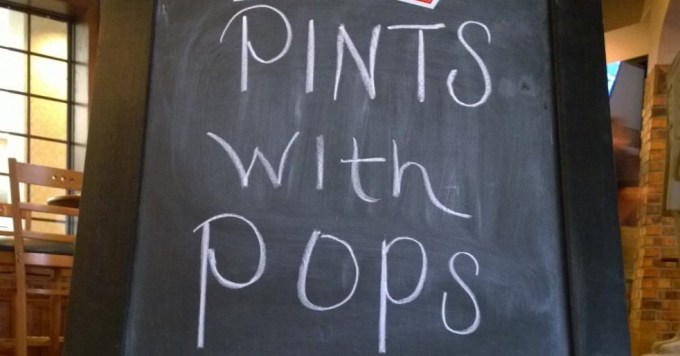 PINTS
with
POPS